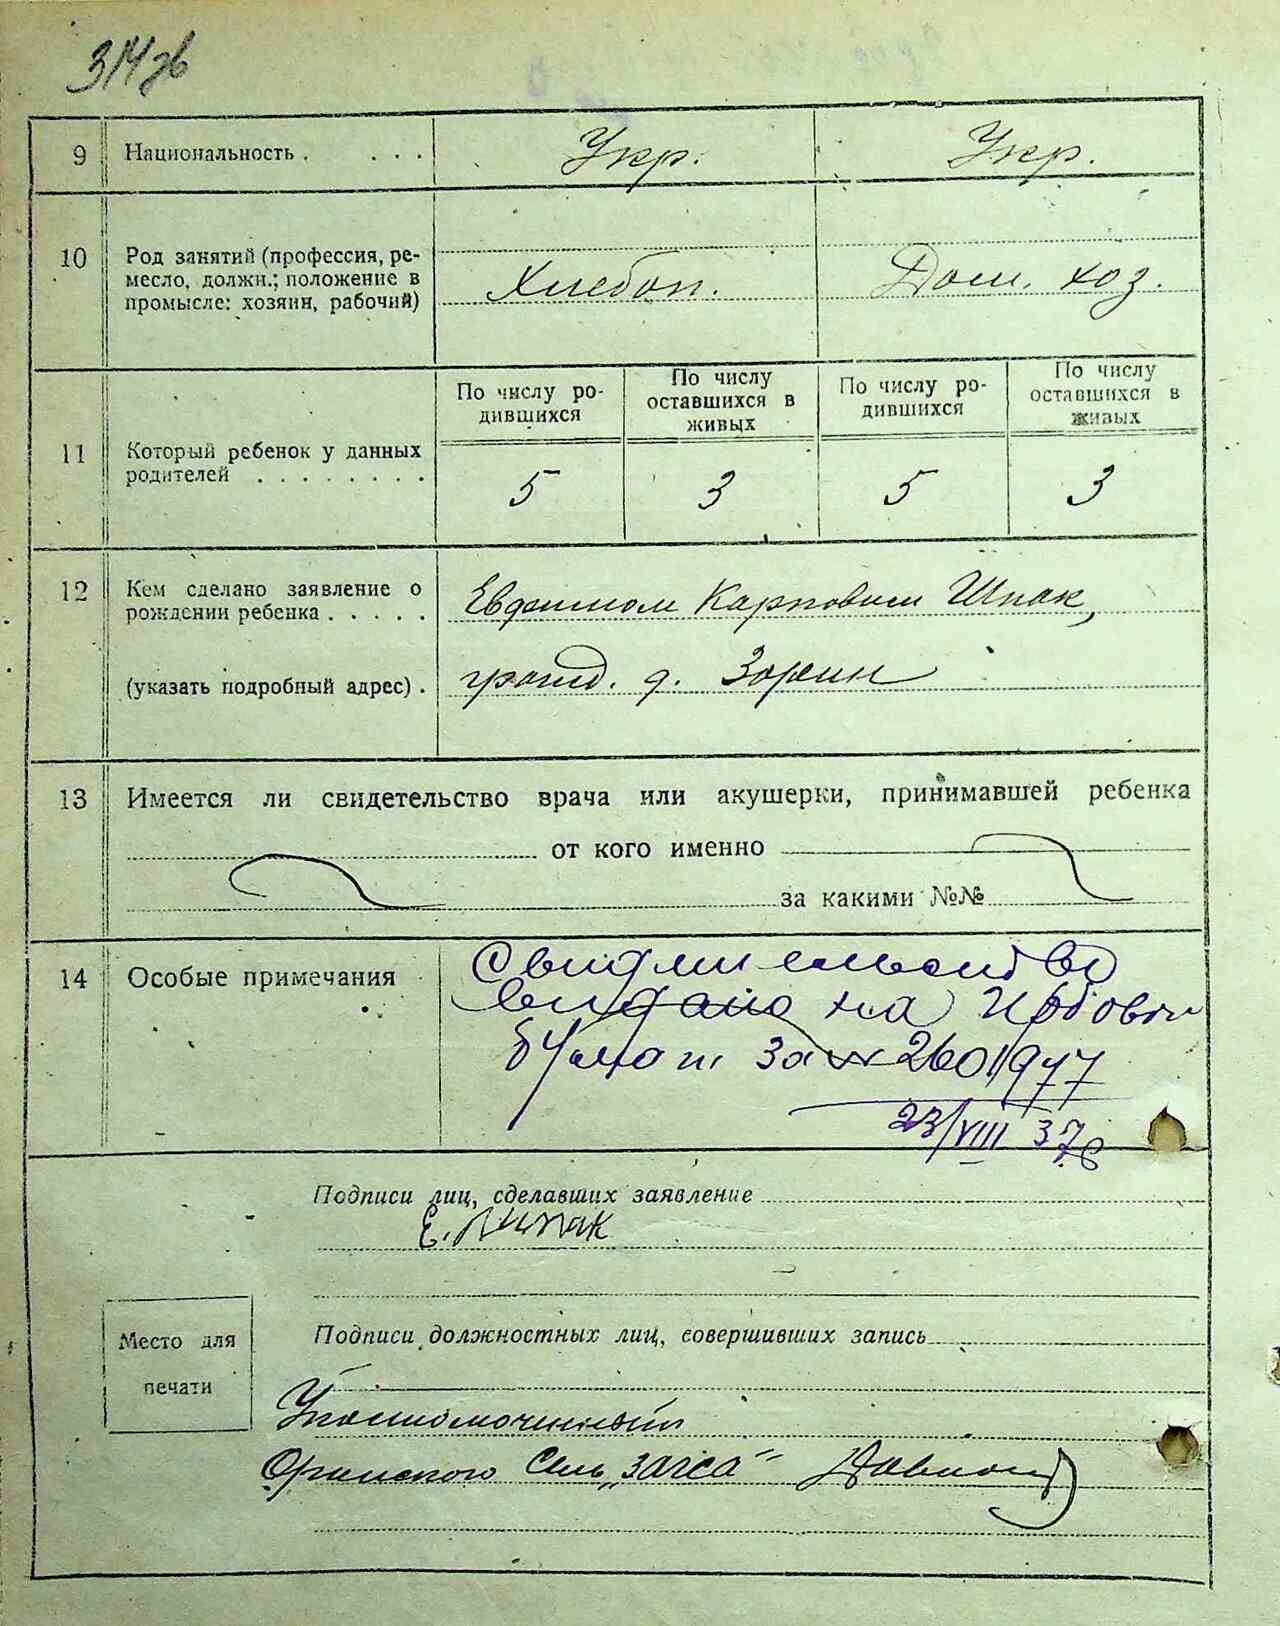 314 зв
9 Национальность . . . . Укр. Укр.
10 Род занятий (профессия, ре-
месло, должн.; положение в
промысле: хозяин, рабочий)
Хлебоп. Дом. хоз.
По числу ро-
дившихся
По числу
оставшихся в
живых
По числу ро-
дившихся
По числу
оставшихся в
живых
11 Который ребенок у данных
родителей . . . . . . . .
5 3 5 3
12 Кем сделано заявление о
рождении ребенка . . . . .
Карповим Шпак,
(указать подробный адрес) .
д.
13 Имеется ли свидетельство врача или акушерки, принимавшей ребенка
от кого именно
за какими №№
14 Особые примечания
Свидительство
видано на
за № 2601977
23/VIII 37
Подписи лиц, сделавших заявление
Е. Шпак
Подписи должностных лиц, совершивших запись
Место для
печати
Сель „загса“